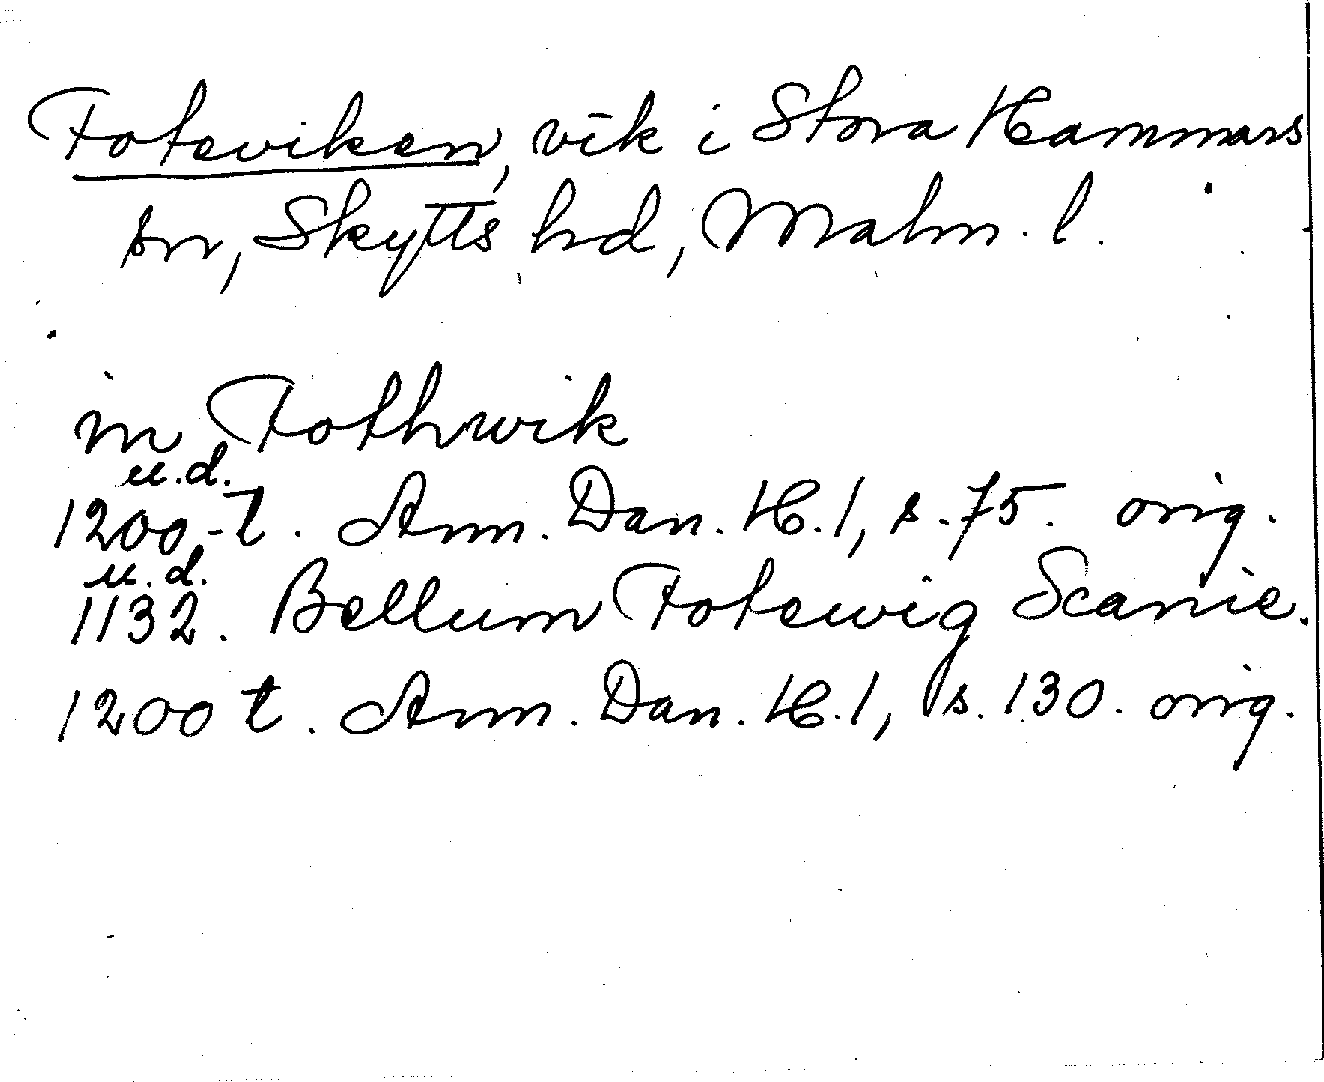 Foteviken, vik i Stora Hammars
sn, Skytts hd, Malm. l.
in Fothwik
u.d.
1200-t. Ann. Dan. H. 1, s. 75. orig.
u.d.
1132. Bellum Fotewig Scanie.
1200 t. Ann. Dan. H. 1, s. 130. orig.